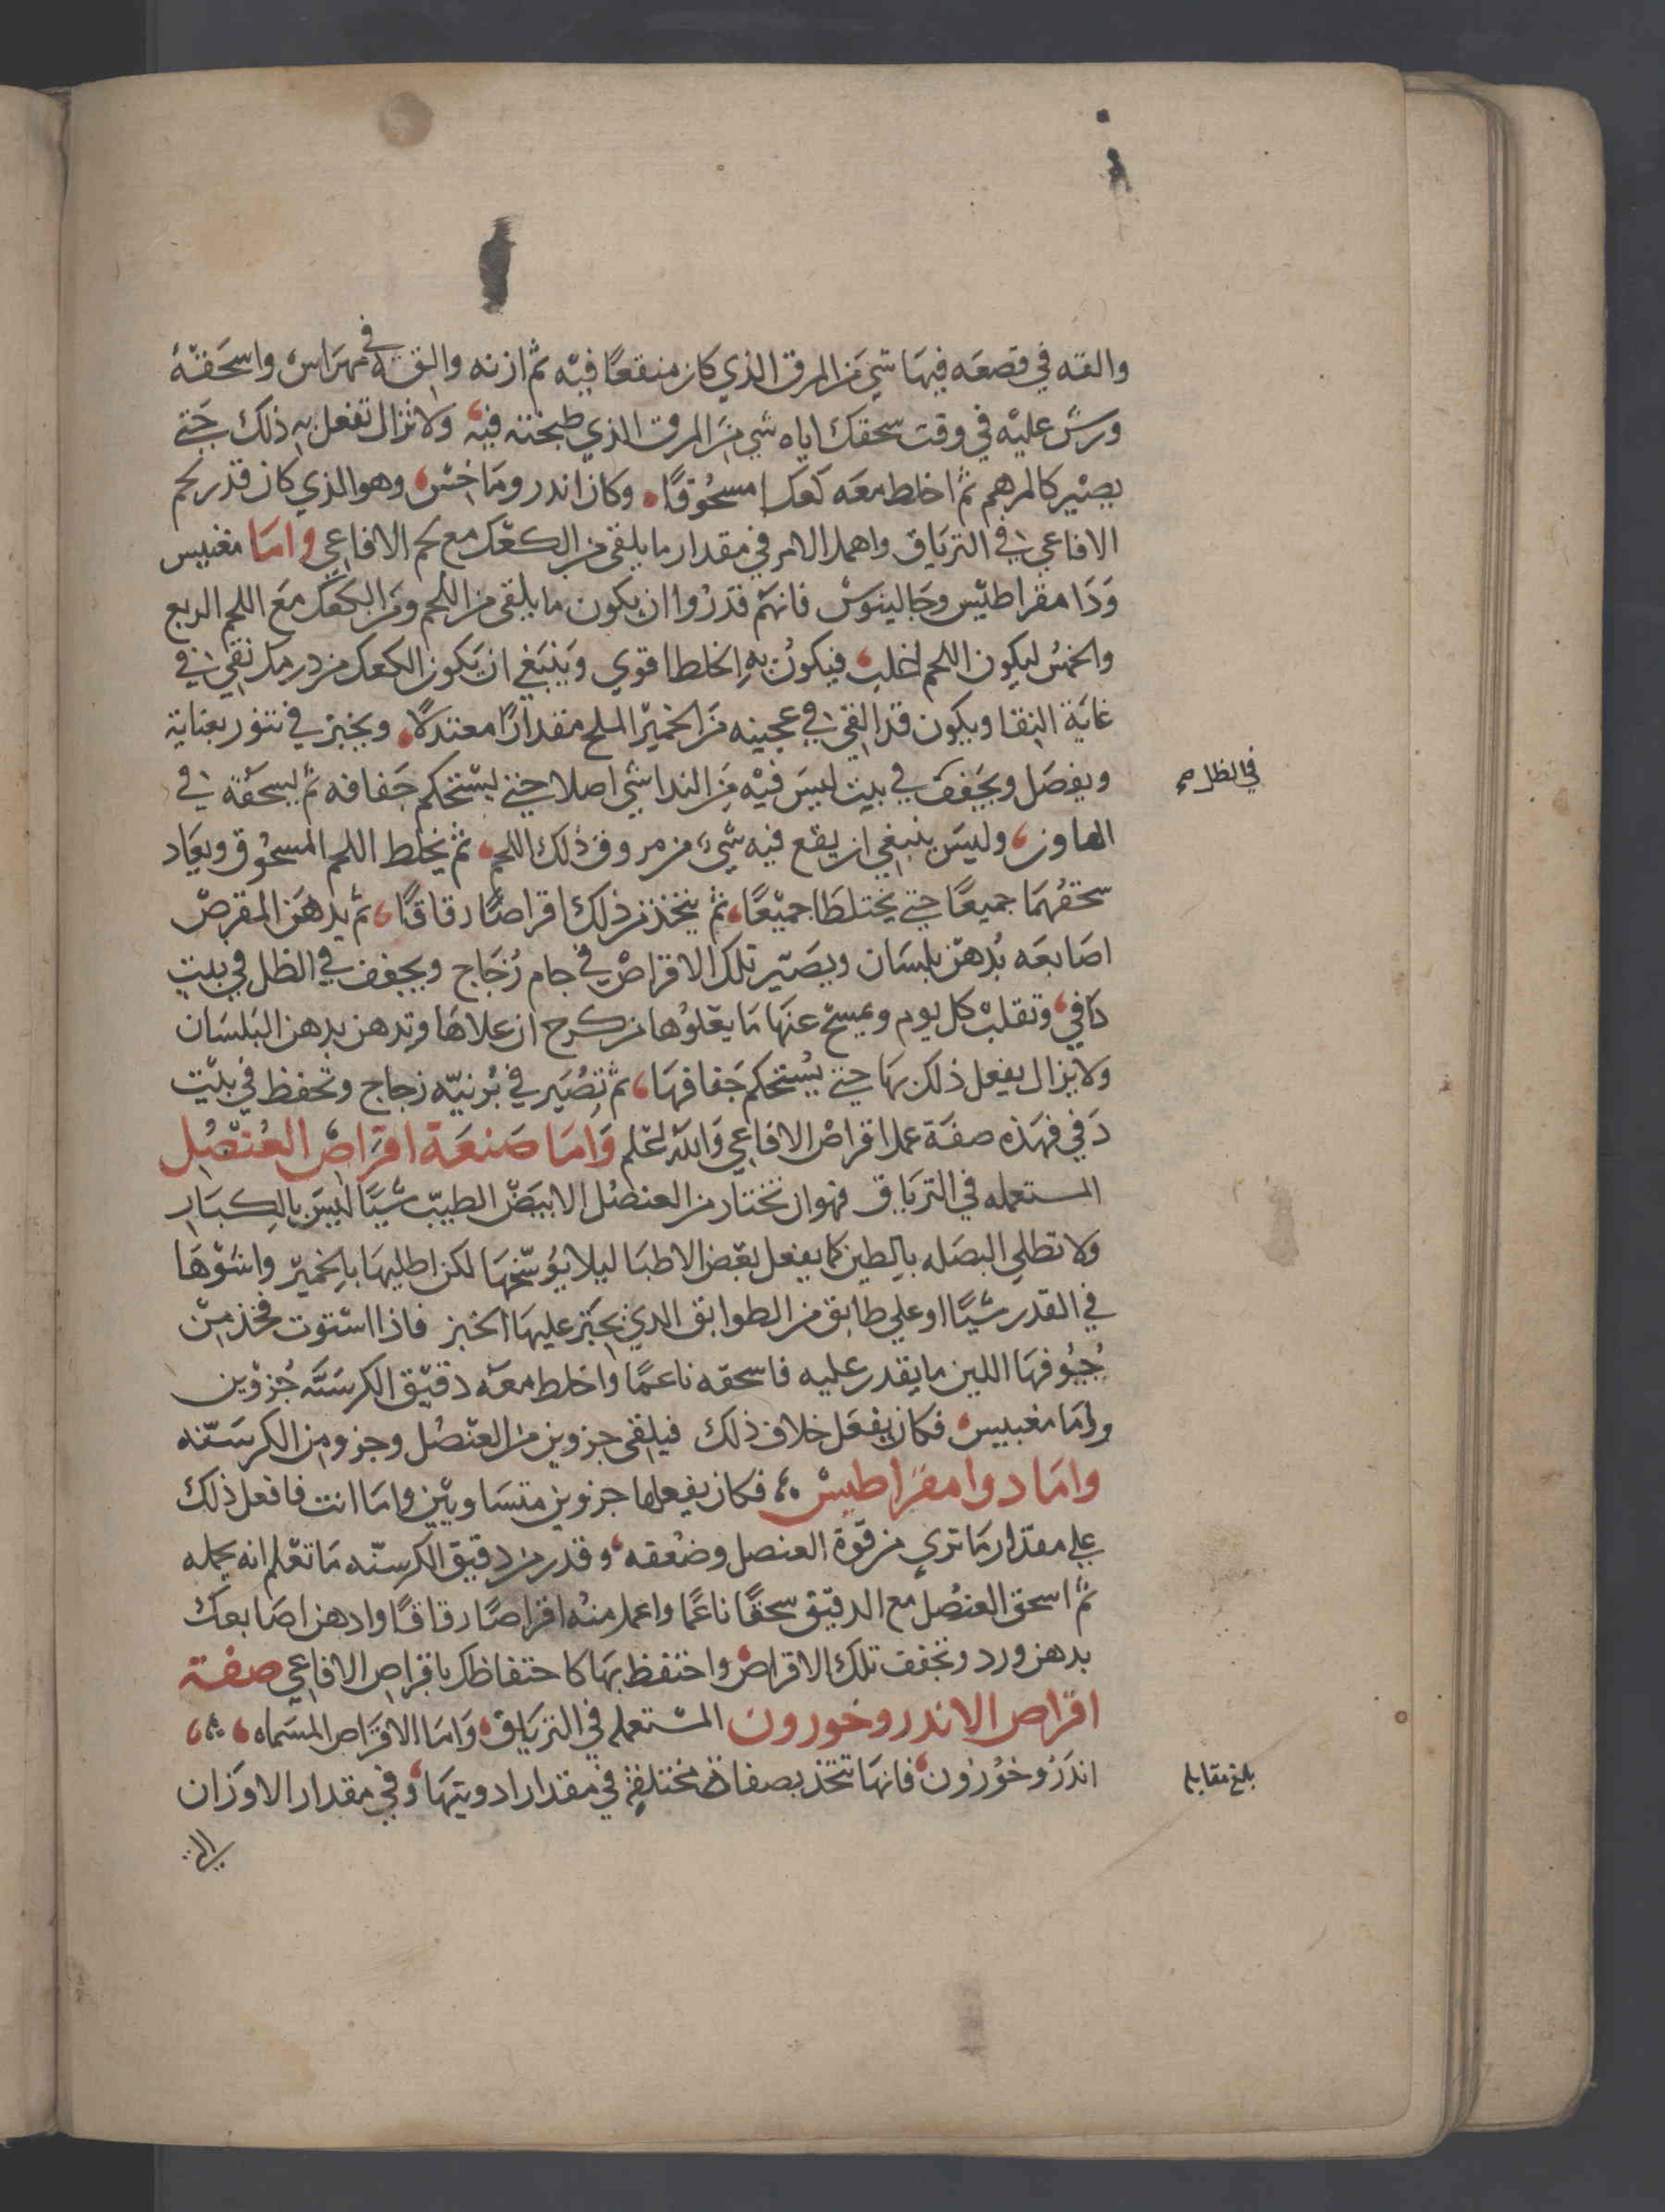 والقه في قصعه فيها شي من المرق الذي كان منقعًا فيه ثم ازنه والقه في مهراس واسحقه
ورش عليه في وقت سحقك اياه شي من المرق الذي طبخته فيه ولا تزال تفعل به ذلك حتى
يصير كالمرهم ثم اخلط معه كعكا مسحوقًا وكان اندروماخس وهو الذي كان قدر لحم
الافاعي في الترياق واهمل الامر في مقدار ما يلقى من الكعك مع لحم الافاعي واما مغنيس
ودامقراطيس وجالينوس فانهم قدروا ان يكون ما يلقى من اللحم ومن الكعك مع اللحم الربع
والخمس ليكون اللحم اغلب فيكون به الخلط اقوي وينبغي ان يكون الكعك من درمك نقي في
غاية النقا ويكون قد القي في عجينه من الخمير الملح مقدارًا معتدلًا ويخبز في تنور بعناية
ويفصل ويجفف في بيت ليس فيه من الندا شي اصلا حتى يستحكم جفافه ثم يسحقه في
في الظل صح
الهاون وليس ينبغي ان يقع فيه شيء من مروق ذلك اللحم ثم يخلط اللحم المسحوق ويعاد
سحقهما جميعًا حتى يختلطا جميعًا ثم يتخذ من ذلك اقراصًا رقاقًا ثم يدهن المقرص
اصابعه بدهن بلسان ويصير تلك الاقراص في جام زجاج ويجفف في الظل في بيت
دافي وتقلب كل يوم ويمسح عنها ما يعلوها من كرح ان علاها وتدهن بدهن البلسان
ولا يزال يفعل ذلك بها حتى يستحكم جفافها ثم تصير في برنيه زجاج وتحفظ في بيت
دفي فهذه صفة عمل اقراص الافاعي والله اعلم واما صنعة اقراص العنصل
المستعمله في الترياق فهو ان تختار من العنصل الابيض الطيب شيًا ليس بالكبار
ولا تطلي البصله بالطين كما يفعل بعض الاطبا ليلا يوسخها لكن اطليها بالخمير واشوها
في القدر شيًا او على طابق من الطوابق الذي يخبز عليها الخبز فاذا استوت فخذ من
جيوفها اللين ما يقدر عليه فاسحقه ناعمًا واخلط معه دقيق الكرسنه جزوين
واما مغنيس فكان يفعل خلاف ذلك فيلقى جزوين من العنصل وجزو من الكرسنه
واما دوامقراطيس فكان يفعلها جزوين متساويين واما انت فافعل ذلك
على مقدار ما ترى من قوة العنصل وضعفه وقدر من دقيق الكرسنه ما تعلم انه يحمله
ثم اسحق العنصل مع الدقيق سحقًا ناعمًا واعمل منه اقراصًا رقاقًا وادهن اصابعك
بدهن ورد وتجفف تلك الاقراص واحتفظ بها كاحتفاظك باقراص الافاعي صفة
اقراص الاندروخورون المستعمله في الترياق واما الاقراص المسماه
اندروخورون فانها تتخذ بصفات مختلفة في مقدار ادويتها وفي مقدار الاوزان
بلغ مقابله